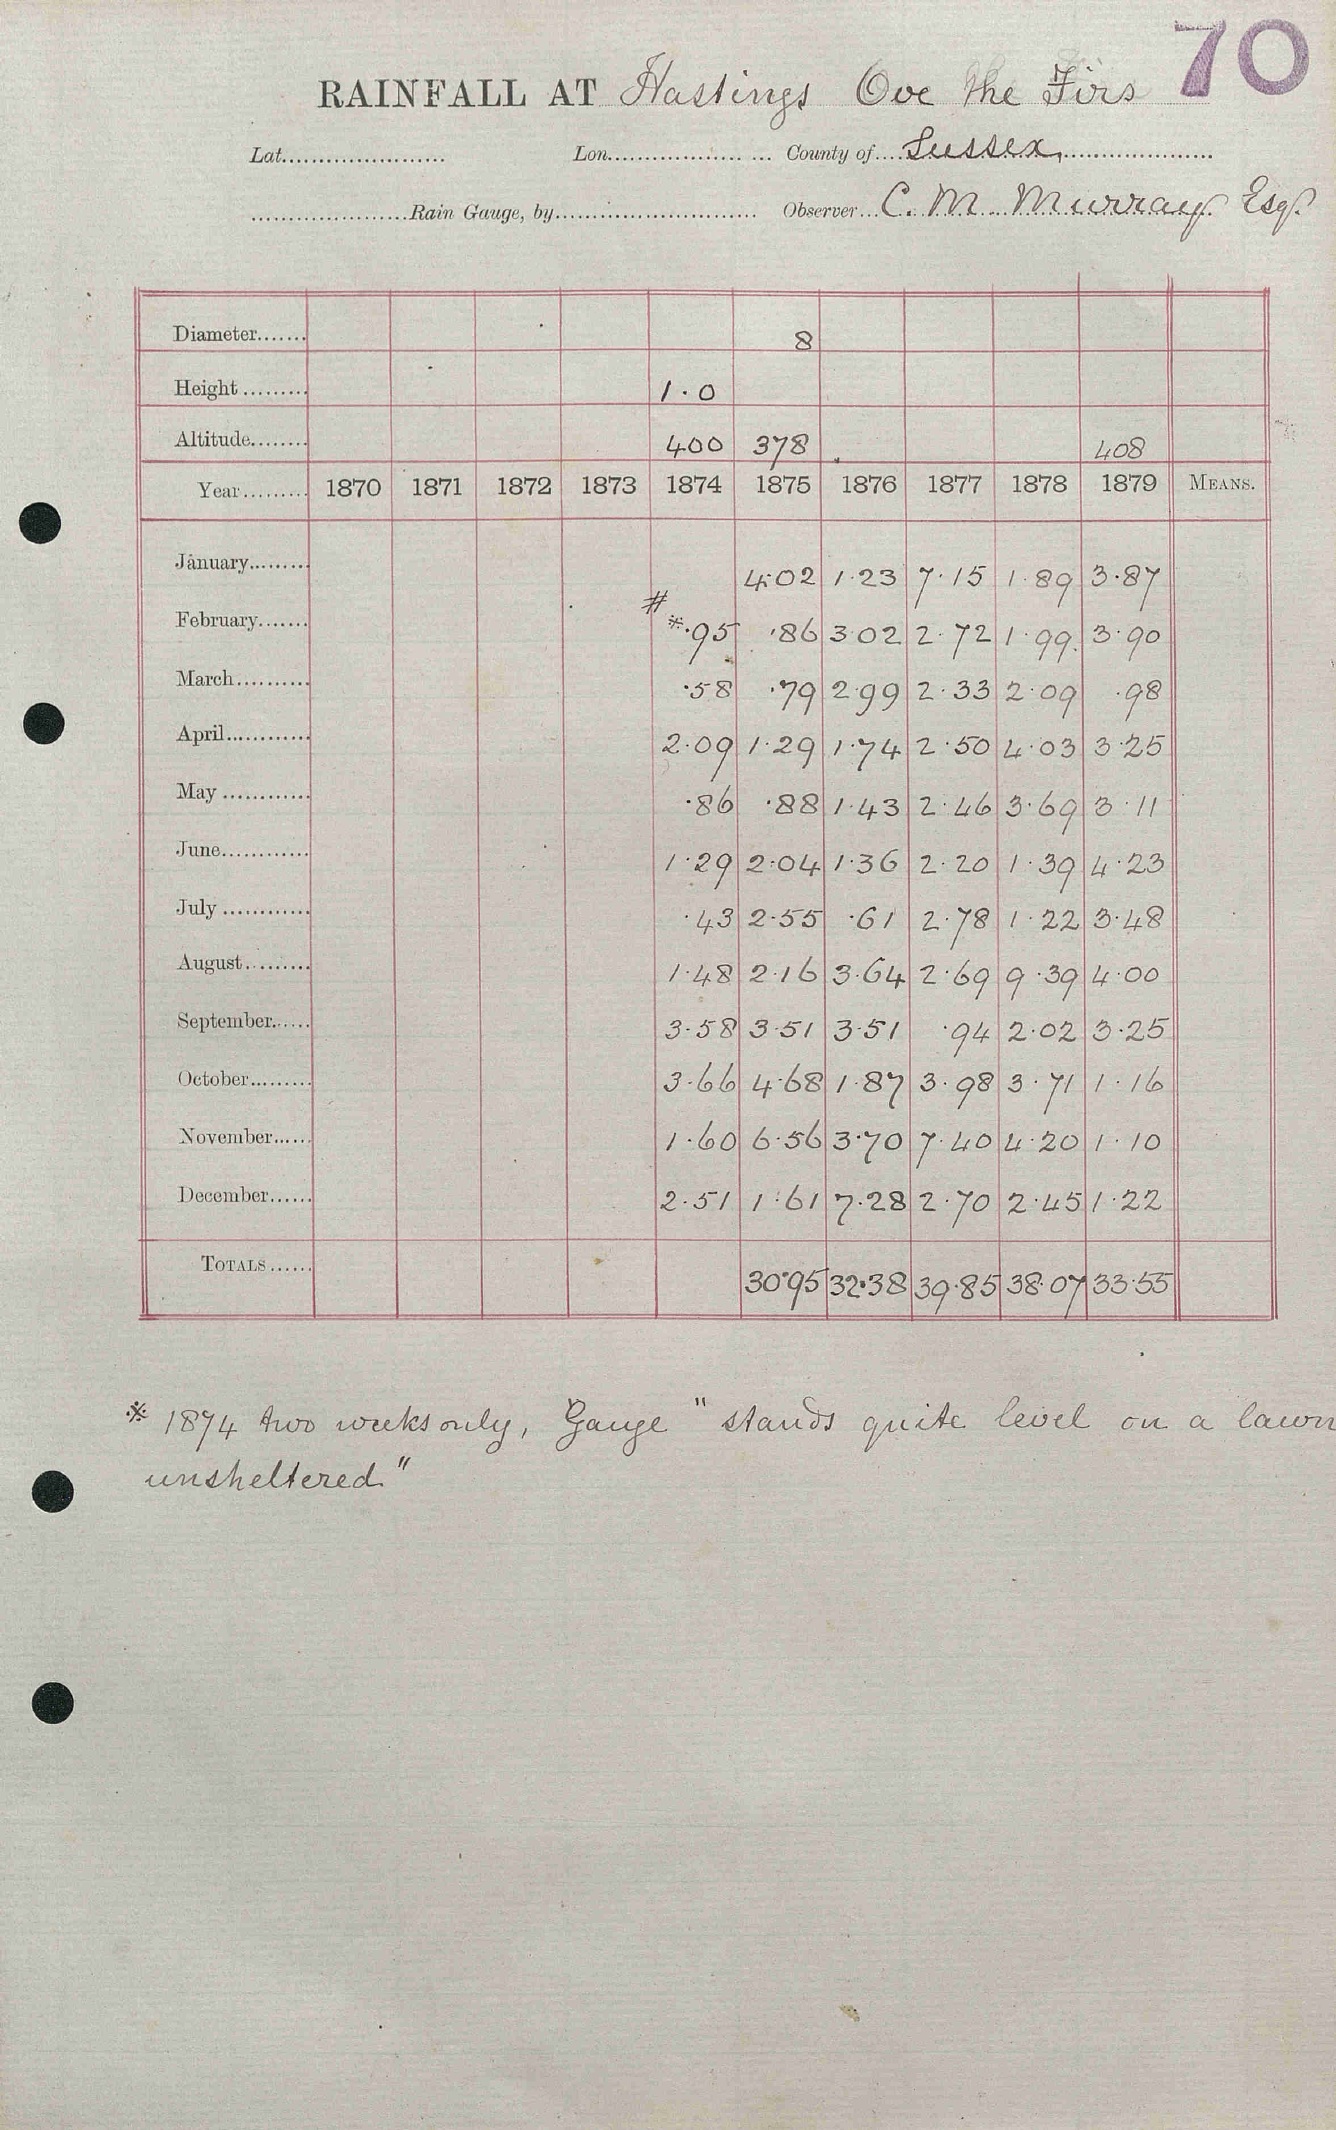 70
RAINFALL AT Hastings Ore The Firs
Lat. Lon. County of Sussex.
Rain Gauge, by Observer C. M. Murray Esq.
Diameter 8
Height 1.0
Altitude 400 378 408
Year 1870 1871 1872 1873 1874 1875 1876 1877 1878 1879 MEANS.
January 4.02 1.23 7.15 1.89 3.87
February # * .95 .86 3.02 2.72 1.99 3.90
March .58 .79 2.99 2.33 2.09 .98
April 2.09 1.29 1.74 2.50 4.03 3.25
May .86 .88 1.43 2.46 3.69 3.11
June 1.29 2.04 1.36 2.20 1.39 4.23
July .43 2.55 .61 2.78 1.22 3.48
August 1.48 2.16 3.64 2.69 9.39 4.00
September 3.58 3.51 3.51 .94 2.02 3.25
October 3.66 4.68 1.87 3.98 3.71 1.16
November 1.60 6.56 3.70 7.40 4.20 1.10
December 2.51 1.61 7.28 2.70 2.45 1.22
TOTALS 30.95 32.38 39.85 38.07 33.55
* 1874 two weeks only, Gauge "stands quite level on a lawn
unsheltered"